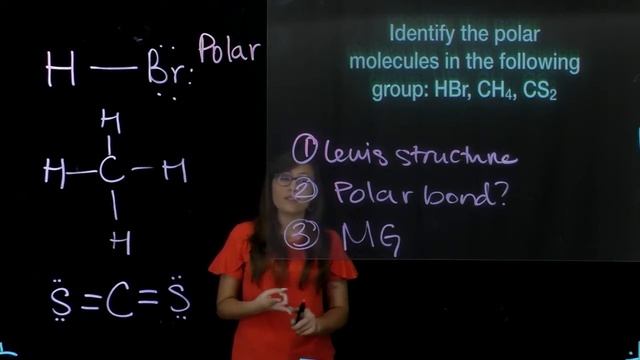 H — Br: Polar
H
H—C—H
H
S=C=S
Identify the polar
molecules in the following
group: HBr, CH₄, CS₂
① Lewis structure
② Polar bond?
③ MG